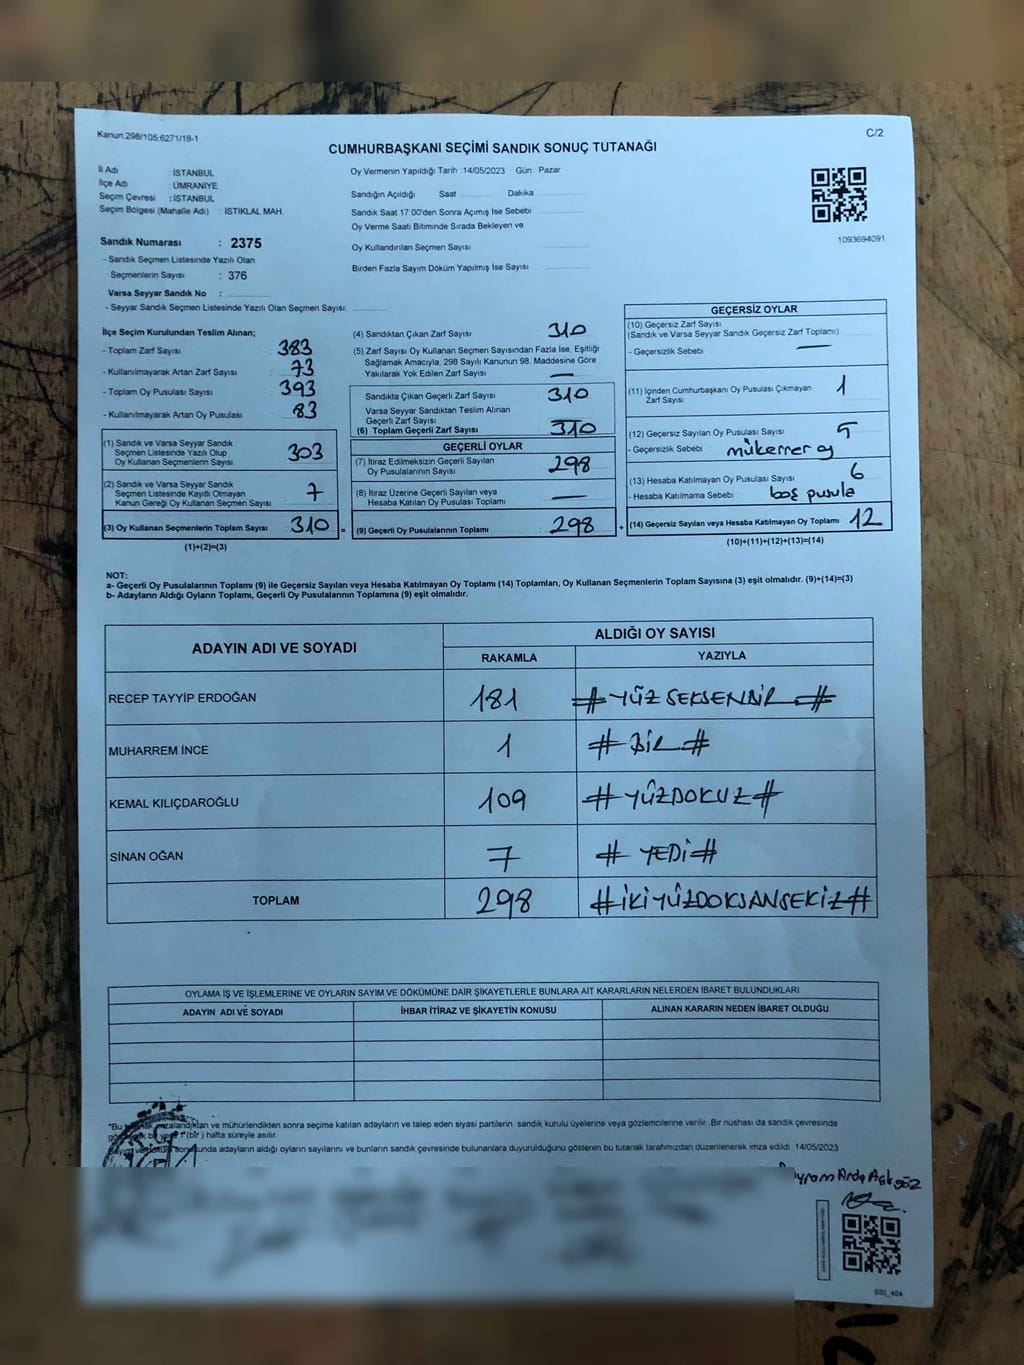 Kanun:298/105;6271/18-1
C/2
CUMHURBAŞKANI SEÇİMİ SANDIK SONUÇ TUTANAĞI
İl Adı : İSTANBUL
İlçe Adı : ÜMRANİYE
Seçim Çevresi : İSTANBUL
Seçim Bölgesi (Mahalle Adı) : İSTİKLAL MAH.
Sandık Numarası : 2375
- Sandık Seçmen Listesinde Yazılı Olan
Seçmenlerin Sayısı : 376
Varsa Seyyar Sandık No :
- Seyyar Sandık Seçmen Listesinde Yazılı Olan Seçmen Sayısı:
Oy Vermenin Yapıldığı Tarih 14/05/2023 Gün Pazar
Sandığın Açıldığı Saat Dakika
Sandık Saat 17.00'den Sonra Açımış İse Sebebi
Oy Verme Saati Bitiminde Sırada Bekleyen ve
Oy Kullandırılan Seçmen Sayısı
Birden Fazla Sayım Döküm Yapılmış İse Sayısı
1093694091
İlçe Seçim Kurulundan Teslim Alınan;
- Toplam Zarf Sayısı 383
- Kullanılmayarak Artan Zarf Sayısı 73
- Toplam Oy Pusulası Sayısı 393
- Kullanılmayarak Artan Oy Pusulası 83
(1) Sandık ve Varsa Seyyar Sandık
Seçmen Listesinde Yazılı Olup
Oy Kullanan Seçmenlerin Sayısı 303
(2) Sandık ve Varsa Seyyar Sandık
Seçmen Listesinde Kayıtlı Olmayan
Kanun Gereği Oy Kullanan Seçmen Sayısı 7
(3) Oy Kullanan Seçmenlerin Toplam Sayısı 310 =
(1)+(2)=(3)
(4) Sandıktan Çıkan Zarf Sayısı 310
(5) Zarf Sayısı Oy Kullanan Seçmen Sayısından Fazla İse, Eşitliği
Sağlamak Amacıyla, 298 Sayılı Kanunun 98. Maddesine Göre
Yakılarak Yok Edilen Zarf Sayısı —
Sandıkta Çıkan Geçerli Zarf Sayısı 310
Varsa Seyyar Sandıktan Teslim Alınan
Geçerli Zarf Sayısı
(6) Toplam Geçerli Zarf Sayısı 310
GEÇERLİ OYLAR
(7) İtiraz Edilmeksizin Geçerli Sayılan
Oy Pusulalarının Sayısı 298
(8) İtiraz Üzerine Geçerli Sayılan veya
Hesaba Katılan Oy Pusulası Toplamı —
(9) Geçerli Oy Pusulalarının Toplamı 298 +
GEÇERSİZ OYLAR
(10) Geçersiz Zarf Sayısı
(Sandık ve Varsa Seyyar Sandık Geçersiz Zarf Toplamı)
- Geçersizlik Sebebi —
(11) İçinden Cumhurbaşkanı Oy Pusulası Çıkmayan
Zarf Sayısı 1
(12) Geçersiz Sayılan Oy Pusulası Sayısı 5
- Geçersizlik Sebebi mükerrer oy
(13) Hesaba Katılmayan Oy Pusulası Sayısı 6
- Hesaba Katılmama Sebebi : boş pusula
(14) Geçersiz Sayılan veya Hesaba Katılmayan Oy Toplamı 12
(10)+(11)+(12)+(13)=(14)
NOT:
a- Geçerli Oy Pusulalarının Toplamı (9) ile Geçersiz Sayılan veya Hesaba Katılmayan Oy Toplamı (14) Toplamları, Oy Kullanan Seçmenlerin Toplam Sayısına (3) eşit olmalıdır. (9)+(14)=(3)
b- Adayların Aldığı Oyların Toplamı, Geçerli Oy Pusulalarının Toplamına (9) eşit olmalıdır.
ADAYIN ADI VE SOYADI
ALDIĞI OY SAYISI
RAKAMLA YAZIYLA
RECEP TAYYİP ERDOĞAN 181 # YÜZ SEKSENBİR #
MUHARREM İNCE 1 # BİR #
KEMAL KILIÇDAROĞLU 109 # YÜZDOKUZ #
SİNAN OĞAN 7 # YEDİ #
TOPLAM 298 # İKİYÜZDOKSANSEKİZ #
OYLAMA İŞ VE İŞLEMLERİNE VE OYLARIN SAYIM VE DÖKÜMÜNE DAİR ŞİKAYETLERLE BUNLARA AİT KARARLARIN NELERDEN İBARET BULUNDUKLARI
ADAYIN ADI VE SOYADI İHBAR İTİRAZ VE ŞİKAYETİN KONUSU ALINAN KARARIN NEDEN İBARET OLDUĞU
*Bu imzalandıktan ve mühürlendikten sonra seçime katılan adayların ve talep eden siyasi partilerin sandık kurulu üyelerine veya gözlemcilerine verilir. Bir nüshası da sandık çevresinde
1 (bir) hafta süreyle asılır.
sonucunda adayların aldığı oyların sayılarını ve bunların sandık çevresinde bulunanlara duyurulduğunu gösteren bu tutanak tarafımızdan düzenlenerek imza edildi. 14/05/2023
Arda Açıkgöz